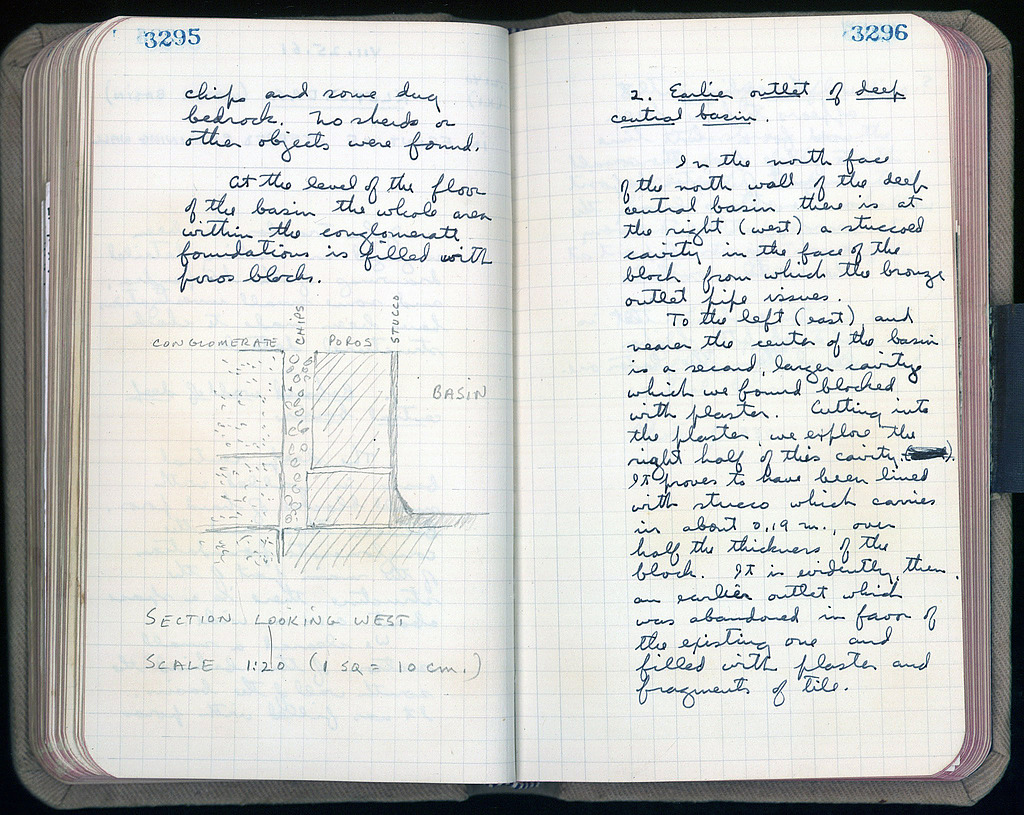 3295
chips and some dug
bedrock. No sherds or
other objects were found.
At the level of the floor
of the basin the whole area
within the conglomerate
foundations is filled with
poros blocks.
CONGLOMERATE
CHIPS
POROS
STUCCO
BASIN
SECTION LOOKING WEST
SCALE 1:20 (1 SQ = 10 CM.)
3296
2. Earlier outlet of deep
central basin.
In the north face
of the north wall of the deep
central basin there is at
the right (west) a stuccoed
cavity in the face of the
block from which the bronze
outlet pipe issues.
To the left (east) and
nearer the center of the basin
is a second, larger cavity
which we found blocked
with plaster. Cutting into
the plaster, we explore the
right half of this cavity.
It proves to have been lined
with stucco which carries
in about 0.19 m., over
half the thickness of the
block. It is evidently, then,
an earlier outlet which
was abandoned in favor of
the existing one and
filled with plaster and
fragments of tile.